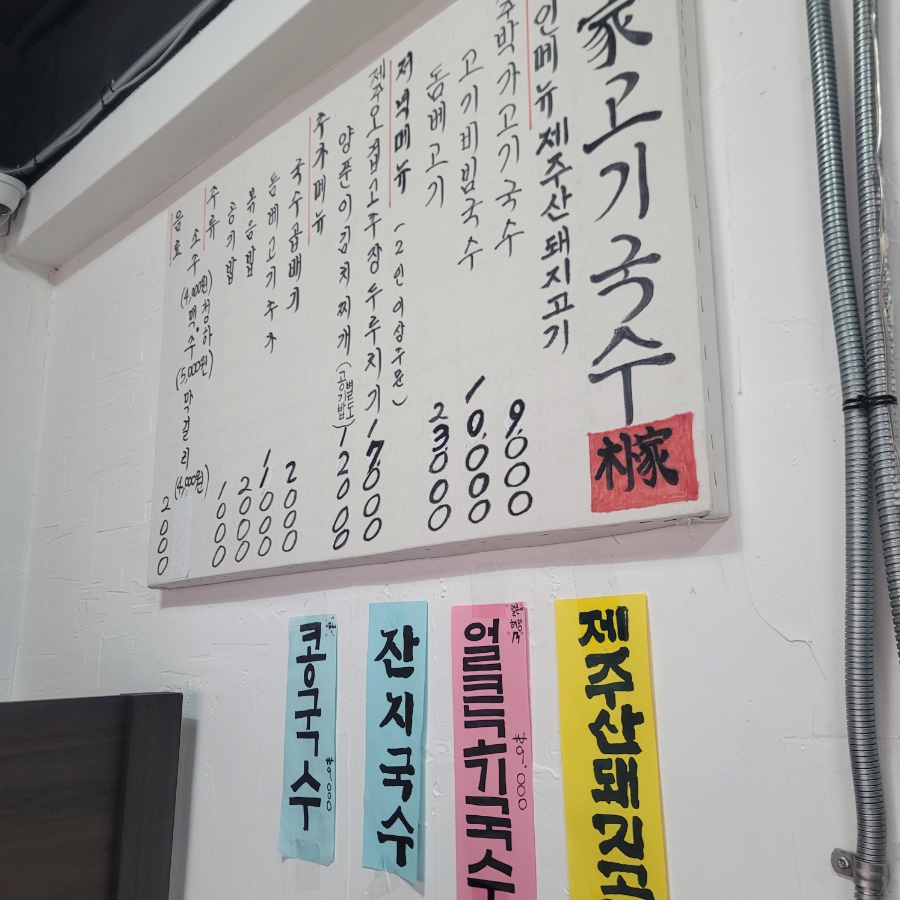 家고기국수
朴家
인메뉴 제주산돼지고기
주박가고기국수 9,000
고기비빔국수 10,000
돔베고기 23000
저녁메뉴 (2인이상주문)
제주오겹고추장두루치기 17,000
양푼이김치찌개 (공기밥별도) 12000
추가메뉴
국수곱배기 2000
돔베고기추가 1000
볶음밥 2000
공기밥 1000
주류
소주 (4,000원) 청하 (5,000원)
맥주 막걸리 (4,000원)
음료 2000
제주산돼지고
얼큰고기국수 ₩9,000
잔치국수
콩국수 ₩9,000